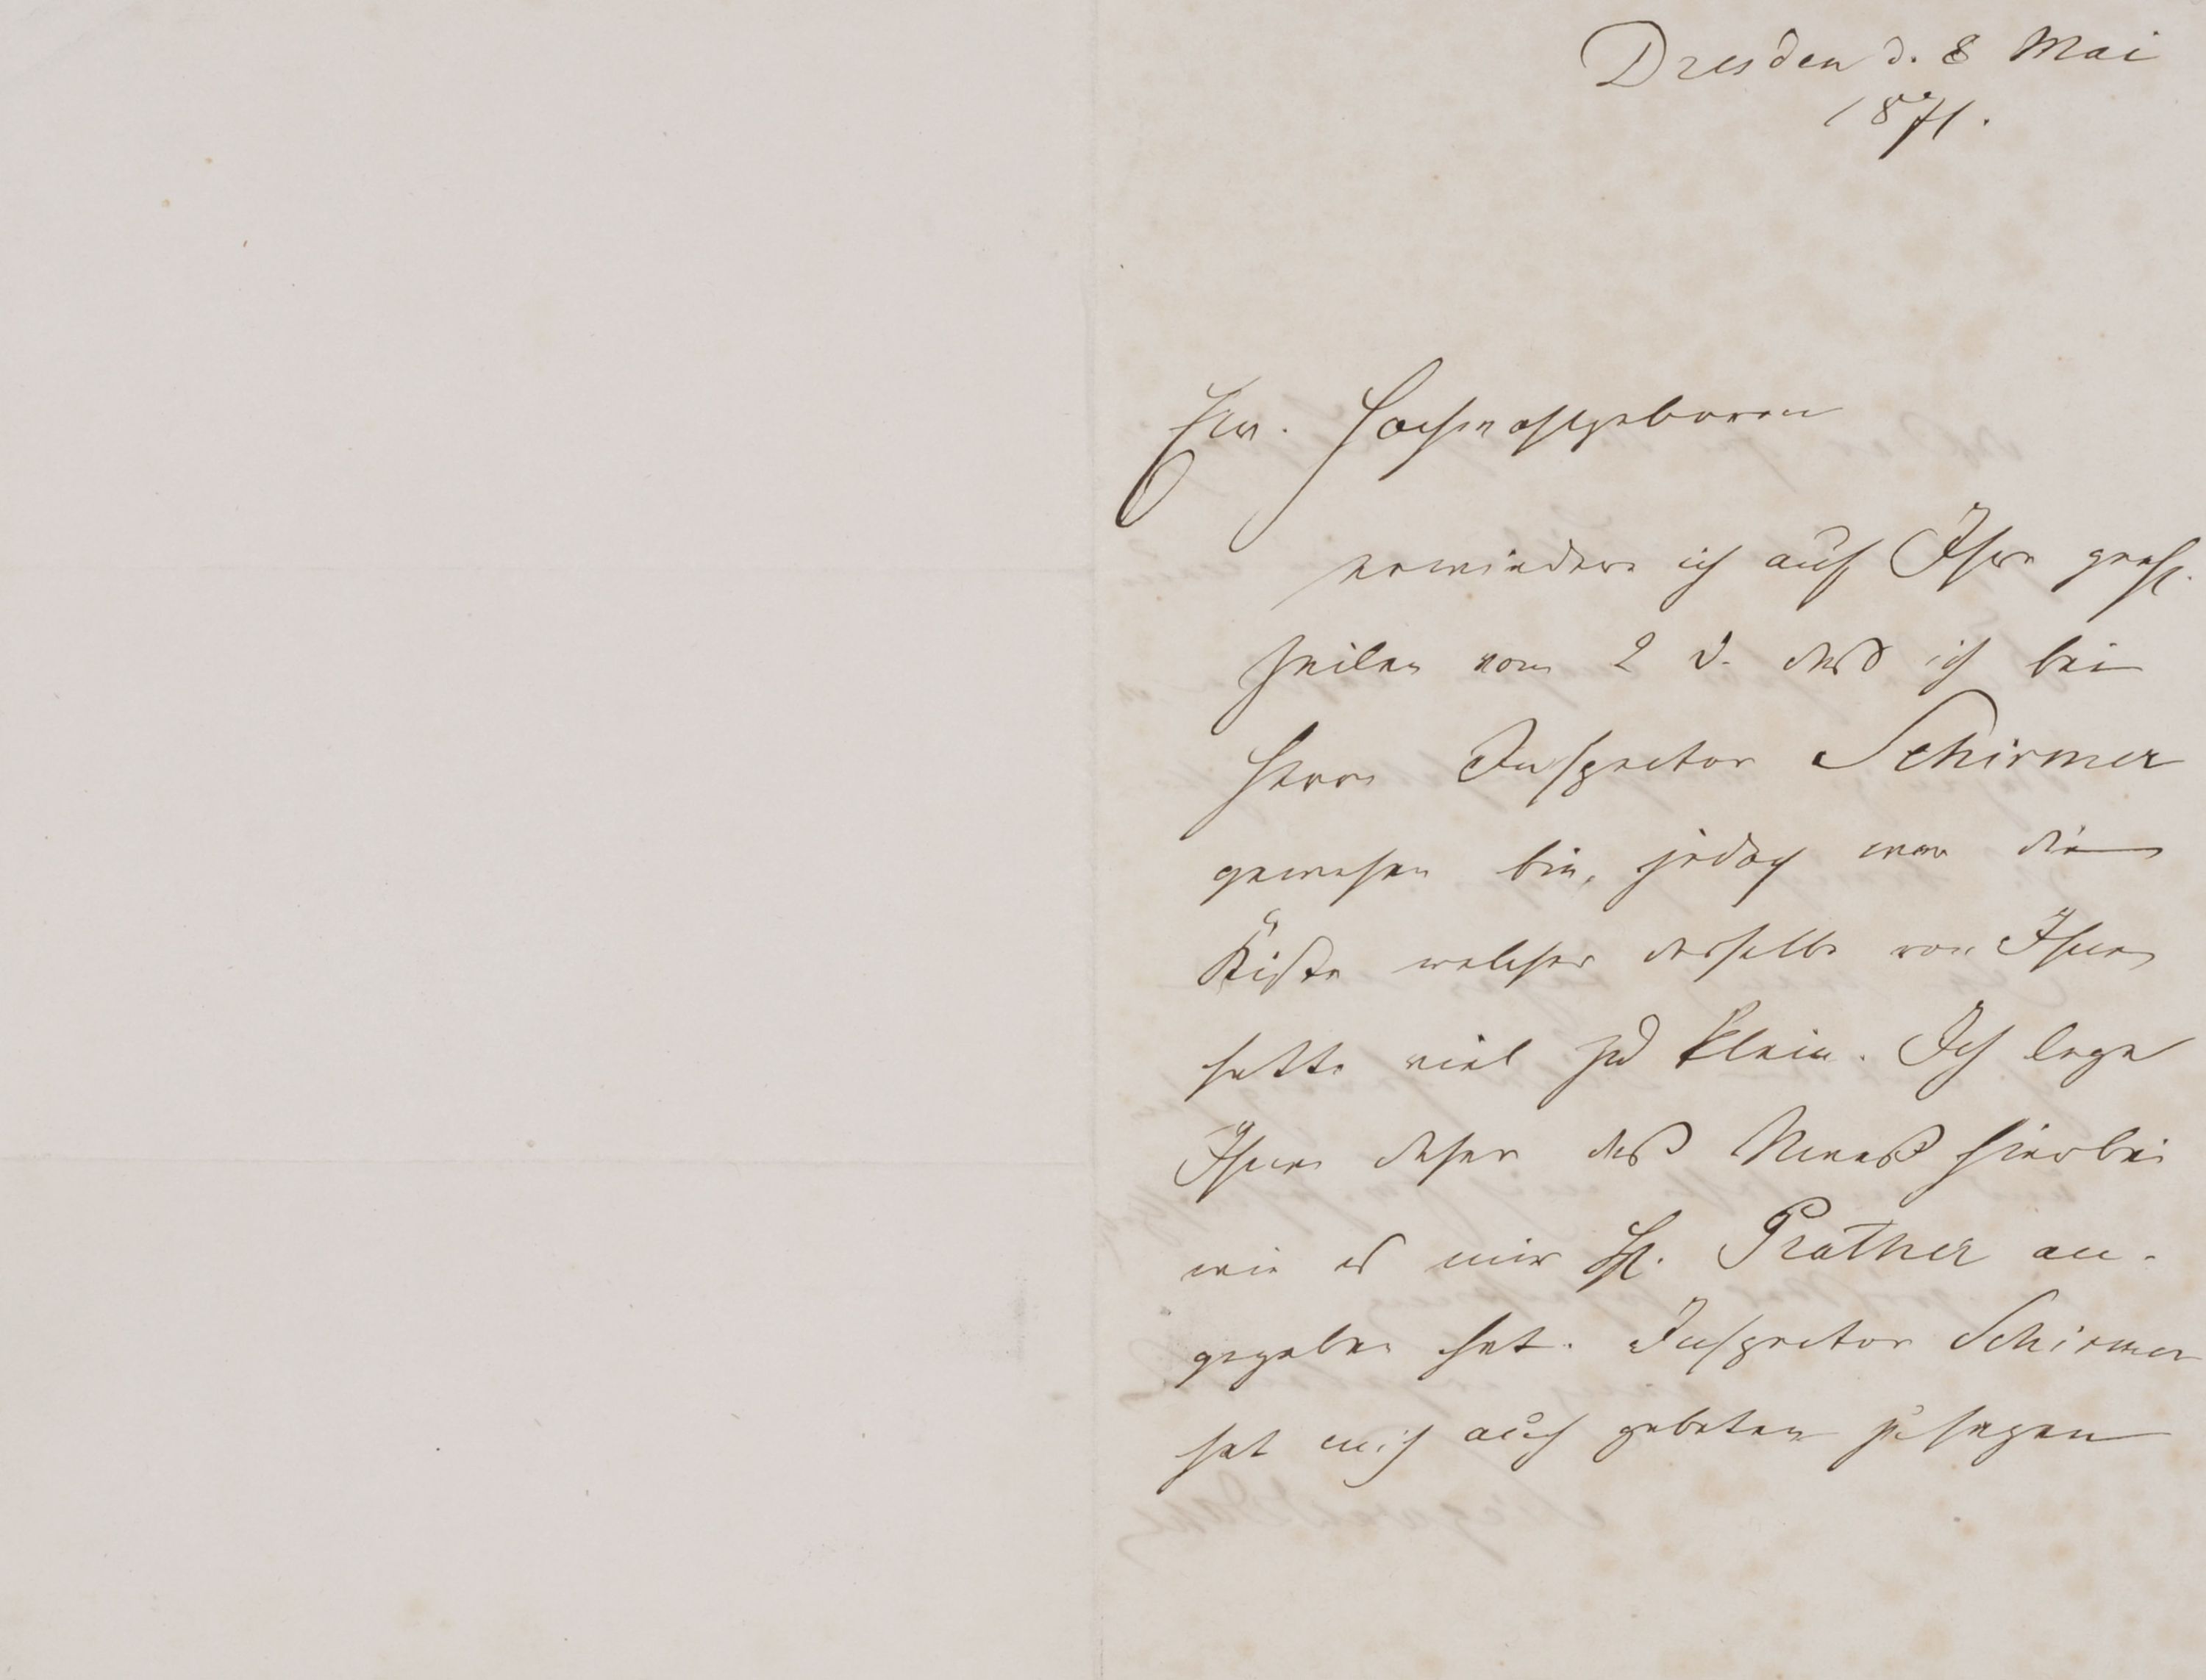 Dresden d. 8 Mai
1871.
Ew. Hochwohlgeboren
erwiedere ich auf Ihre geehrt.
Zeilen vom 2 d. daß ich bei
Herrn Inspector Schirmer
gewesen bin, jedoch war die
Kiste welche derselbe von Ihnen
hatte viel zu klein. Ich lege
Ihnen daher das Maaß hierbei
wie es mir H. Prather an-
gegeben hat. Inspector Schirmer
hat mich auch gebeten zu sagen